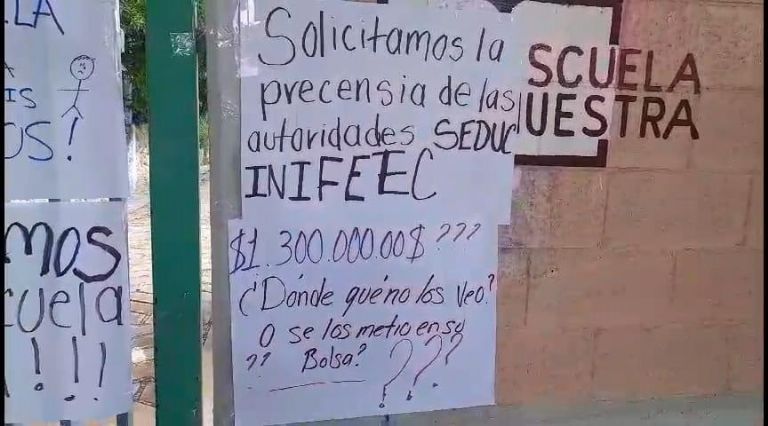 LA
IS
OS!
mos
cuela
!!!
Solicitamos la
precensia de las
autoridades SEDUC
INIFEEC
$1.300.000.00$ ???
¿Dónde que no los veo?
O se los metio en su
?? Bolsa? ???
SCUELA
UESTRA